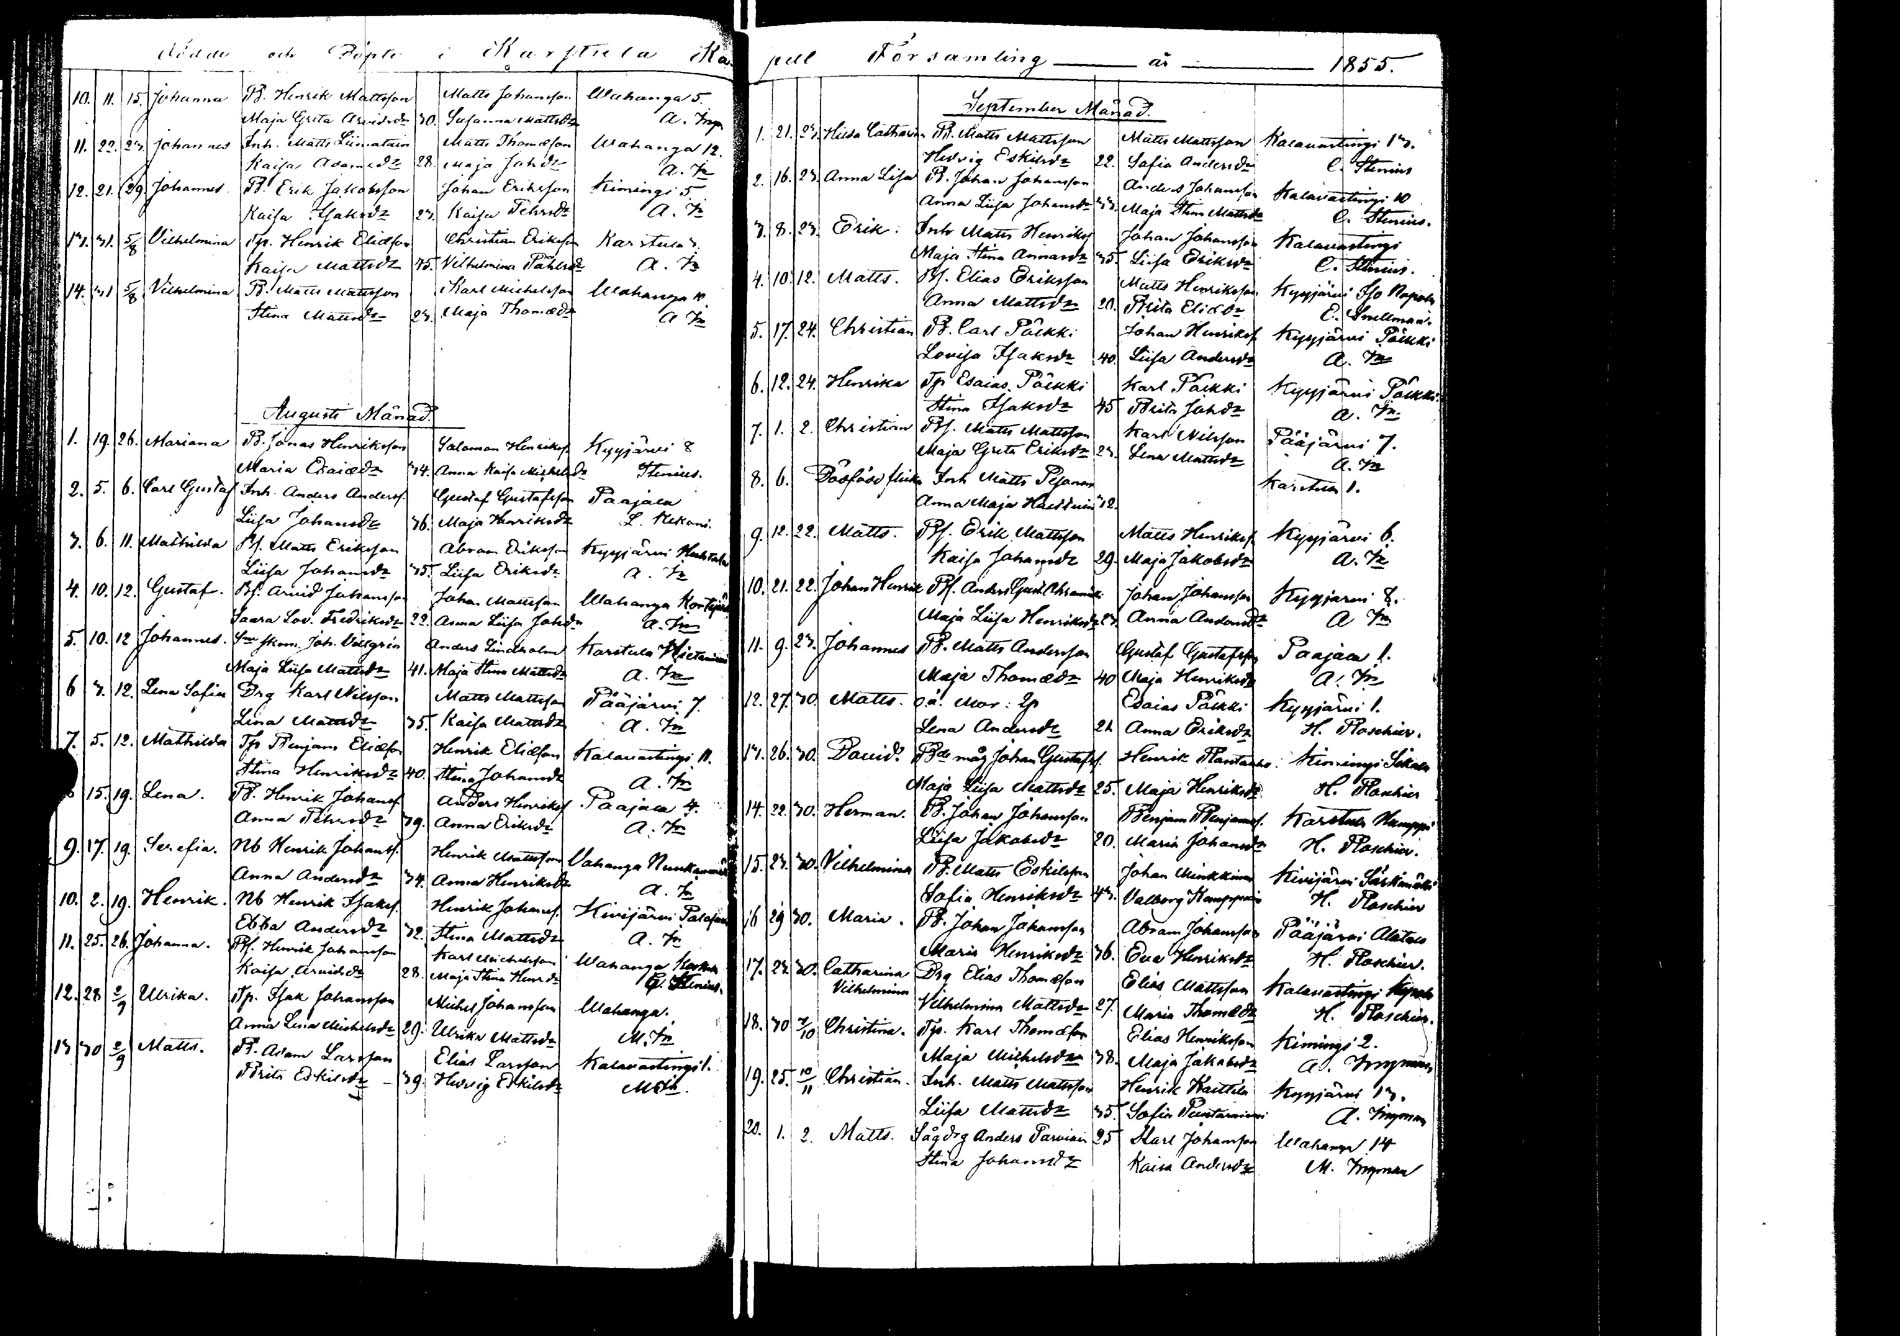 Födde och Döpte i Karstula Ka-
10. 11. 15. Johanna B. Henrik Mattsson Matts Johansson Wahanga 5.
Maja Greta Arvidsdr 30. Susanna Mattsdr A. Ingn
11. 22. 23. Johannes Inh. Matts Liimatain Matts Thomasson Wahanga 12.
Kaisa Adamsdr 28. Maja Johdr A. In
12. 21. 29. Johannes B. Erik Jakobsson Johan Eriksson Kimingi 5
Kaisa Isaksdr 23. Kaisa Pehrsdr A. In
13. 31. 5/8 Vilhelmina Tp. Henrik Eliasson Christian Eriksson Karstula 3.
Kaisa Mattsdr 35. Vilhelmina Påhlsdr A. In
14. 31 5/8 Vilhelmina B. Matts Mattsson Karl Michelsson Wahanga
Stina Mattsdr 23. Maja Thomasdr A In
Augusti Månad.
1. 19. 26. Mariana B. Jonas Henriksson Salomon Henriks. Kyyjärvi 8
Maria Esaiædr 34. Anna Kaisa Michelsdr Stenius.
2. 5. 6. Carl Gustaf Inh. Anders Anderss. Gustaf Gustafsson Paajala
Liisa Johansdr 36. Maja Henriksdr L. Kekoni
3. 6. 11. Mathilda Bs. Matts Eriksson Abram Eriksson Kyyjärvi
Liisa Johansdr 35. Liisa Eriksdr A. In
4. 10. 12. Gustaf. Bs. Arvid Johansson Johan Mattsson Wahanga
Saara Lov. Fredriksdr 22. Anna Liisa Johsdr A. In
5. 10. 12 Johannes. Skom. Joh. Anders Lindholm Karstula
Maja Liisa Mattsdr 41. Maja Stina Mattsdr A. In
6 3. 12. Lena Sofia Drg Karl Nilsson Matts Mattsson Pääjärvi 7.
Lena Mattsdr 35. Kaisa Mattsdr A. In
7. 5. 12. Mathilda Tp Benjam Eliasson Henrik Eliasson Kalavastingi 11.
Stina Henriksdr 40. Stina Johansdr A. In
15. 19. Lena. B. Henrik Johanss. Anders Henriks. Paajala 4.
Anna Pehrsdr 39. Anna Eriksdr A. In
9. 17. 19. Serefia. Nb Henrik Johanss. Henrik Mattsson Vahanga
Anna Andersdr 34. Anna Henriksdr A. In
10. 2. 19. Henrik. Nb Henrik Isakss. Henrik Johanss. Kivijärvi
Ebba Andersdr 32. Stina Mattsdr A. In
11. 25. 26. Johanna. Bs. Henrik Johansson Karl Michelsson Wahanga
Kaisa Arvidsdr 28. Maja Stina Henrsdr C. Stenius.
12. 28 2/9 Ulrika. Tp. Isak Johansson Michel Johansson Wahanga.
Anna Lena Michelsdr 29. Ulrika Mattsdr M. In
13 30 2/9 Matts. B. Adam Larsson Elias Larsson Kalavastingi 1.
Brita Eskilsdr 39. Hedvig Eskilsdr M. In.
pell Församling år 1855.
September Månad.
1. 21. 23. Hilda Cathrin B. Matts Mattsson Matts Mattsson Kalavastingi 13.
Hedvig Eskilsdr 22. Sofia Andersdr C. Stenius
2. 16. 23. Anna Lisa B. Johan Johansson Anders Johansson Kalavastingi 10
Anna Liisa Johansdr 33. Maja Stina Mattsdr C. Stenius.
3. 8. 23. Erik. Inh Matts Henriks Johan Johansson Kalavastingi
Maja Stina Annasdr 35. Liisa Eriksdr C. Stenius.
4. 10. 12. Matts. Bs. Elias Eriksson Matts Henriksson Kyyjärvi Iso
Anna Mattsdr 20. Brita Eliædr C. Snellman.
5. 17. 24. Christian B. Carl Pölkki Johan Henriks Kyyjärvi Pölkki
Lovisa Isaksdr 40. Liisa Andersdr A. In
6. 12. 24. Henrika Tp Esaias Pölkki Karl Pölkki Kyyjärvi Pölkki
Stina Isaksdr 45 Brita Johdr A. In.
7. 1. 2. Christian Bs. Matts Mattsson Karl Nilsson Pääjärvi 7.
Maja Greta Eriksdr 23. Lena Mattsdr A. In
8. 6. Dödfödd flicka Inh Matts Karstula 1.
Anna Maja 32.
9. 12. 22. Matts. Bs. Erik Mattsson Matts Henriks. Kyyjärvi 6.
Kaisa Johansdr 29. Maja Jakobsdr A. In
10. 21. 22. Johan Henrik Bs. Anders Gust. Johan Johansson Kyyjärvi 8.
Maja Liisa Henriksdr 23. Anna Andersdr A In
11. 9. 23. Johannes B. Matts Andersson Gustaf Gustafsson Paajala 1.
Maja Thomædr 40 Maja Henriksdr A. In
12. 27. 30. Matts. o.ä. Mor. Ip Esaias Pölkki Kyyjärvi 1.
Lena Andersdr 21 Anna Eriksdr H. Roschier.
13. 26. 30. David. Bds måg Johan Gustafss. Henrik Kiminigi
Maja Liisa Mattsdr 25. Maja Henriksdr H. Roschier
14. 22. 30. Herman. B. Johan Johansson Benjam Benjams. Karstula Humppi
Liisa Jakobsdr 20. Maria Johansdr H. Roschier.
15. 23. 30. Vilhelmina B. Matts Eskilsson Johan Minkkinen Kivijärvi
Sofia Henriksdr 43. Valborg H. Roschier
16 29 30. Maria. B. Johan Johansson Abram Johansson Pääjärvi Alatalo
Maria Henriksdr 36. Eva Henriksdr H. Roschier.
17. 23. 30. Catharina Drg Elias Thomasson Elias Mattsson Kalavastingi
Vilhelmina Vilhelmina Mattsdr 27. Maria Thomædr H. Roschier.
18. 30 7/10 Christina. Tp. Karl Thomasson Elias Henriksson Kimingi 2.
Maja Michelsdr 38. Maja Jakobsdr A. Ingman
19. 25. 10/11 Christian. Inh. Matts Mattsson Henrik Kyyjärvi 13.
Liisa Mattsdr 35. Sofia A. Ingman
20. 1. 2. Matts. Sågdrg Anders Parviain 25 Karl Johansson Wahanga 14
Stina Johansdr Kaisa Andersdr M. Ingman